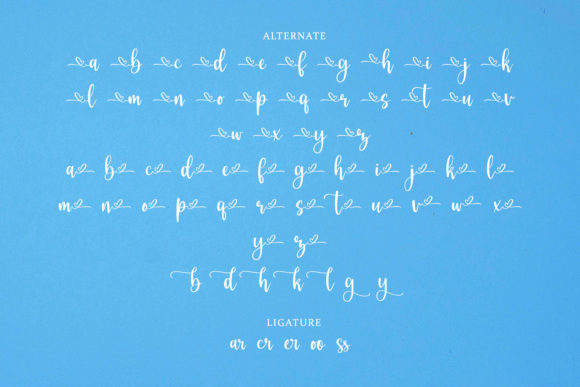 ALTERNATE
a b c d e f g h i j k
l m n o p q r s t u v
w x y z
a b c d e f g h i j k l
m n o p q r s t u v w x
y z
b d h k l g y
LIGATURE
ar cr er oo ss